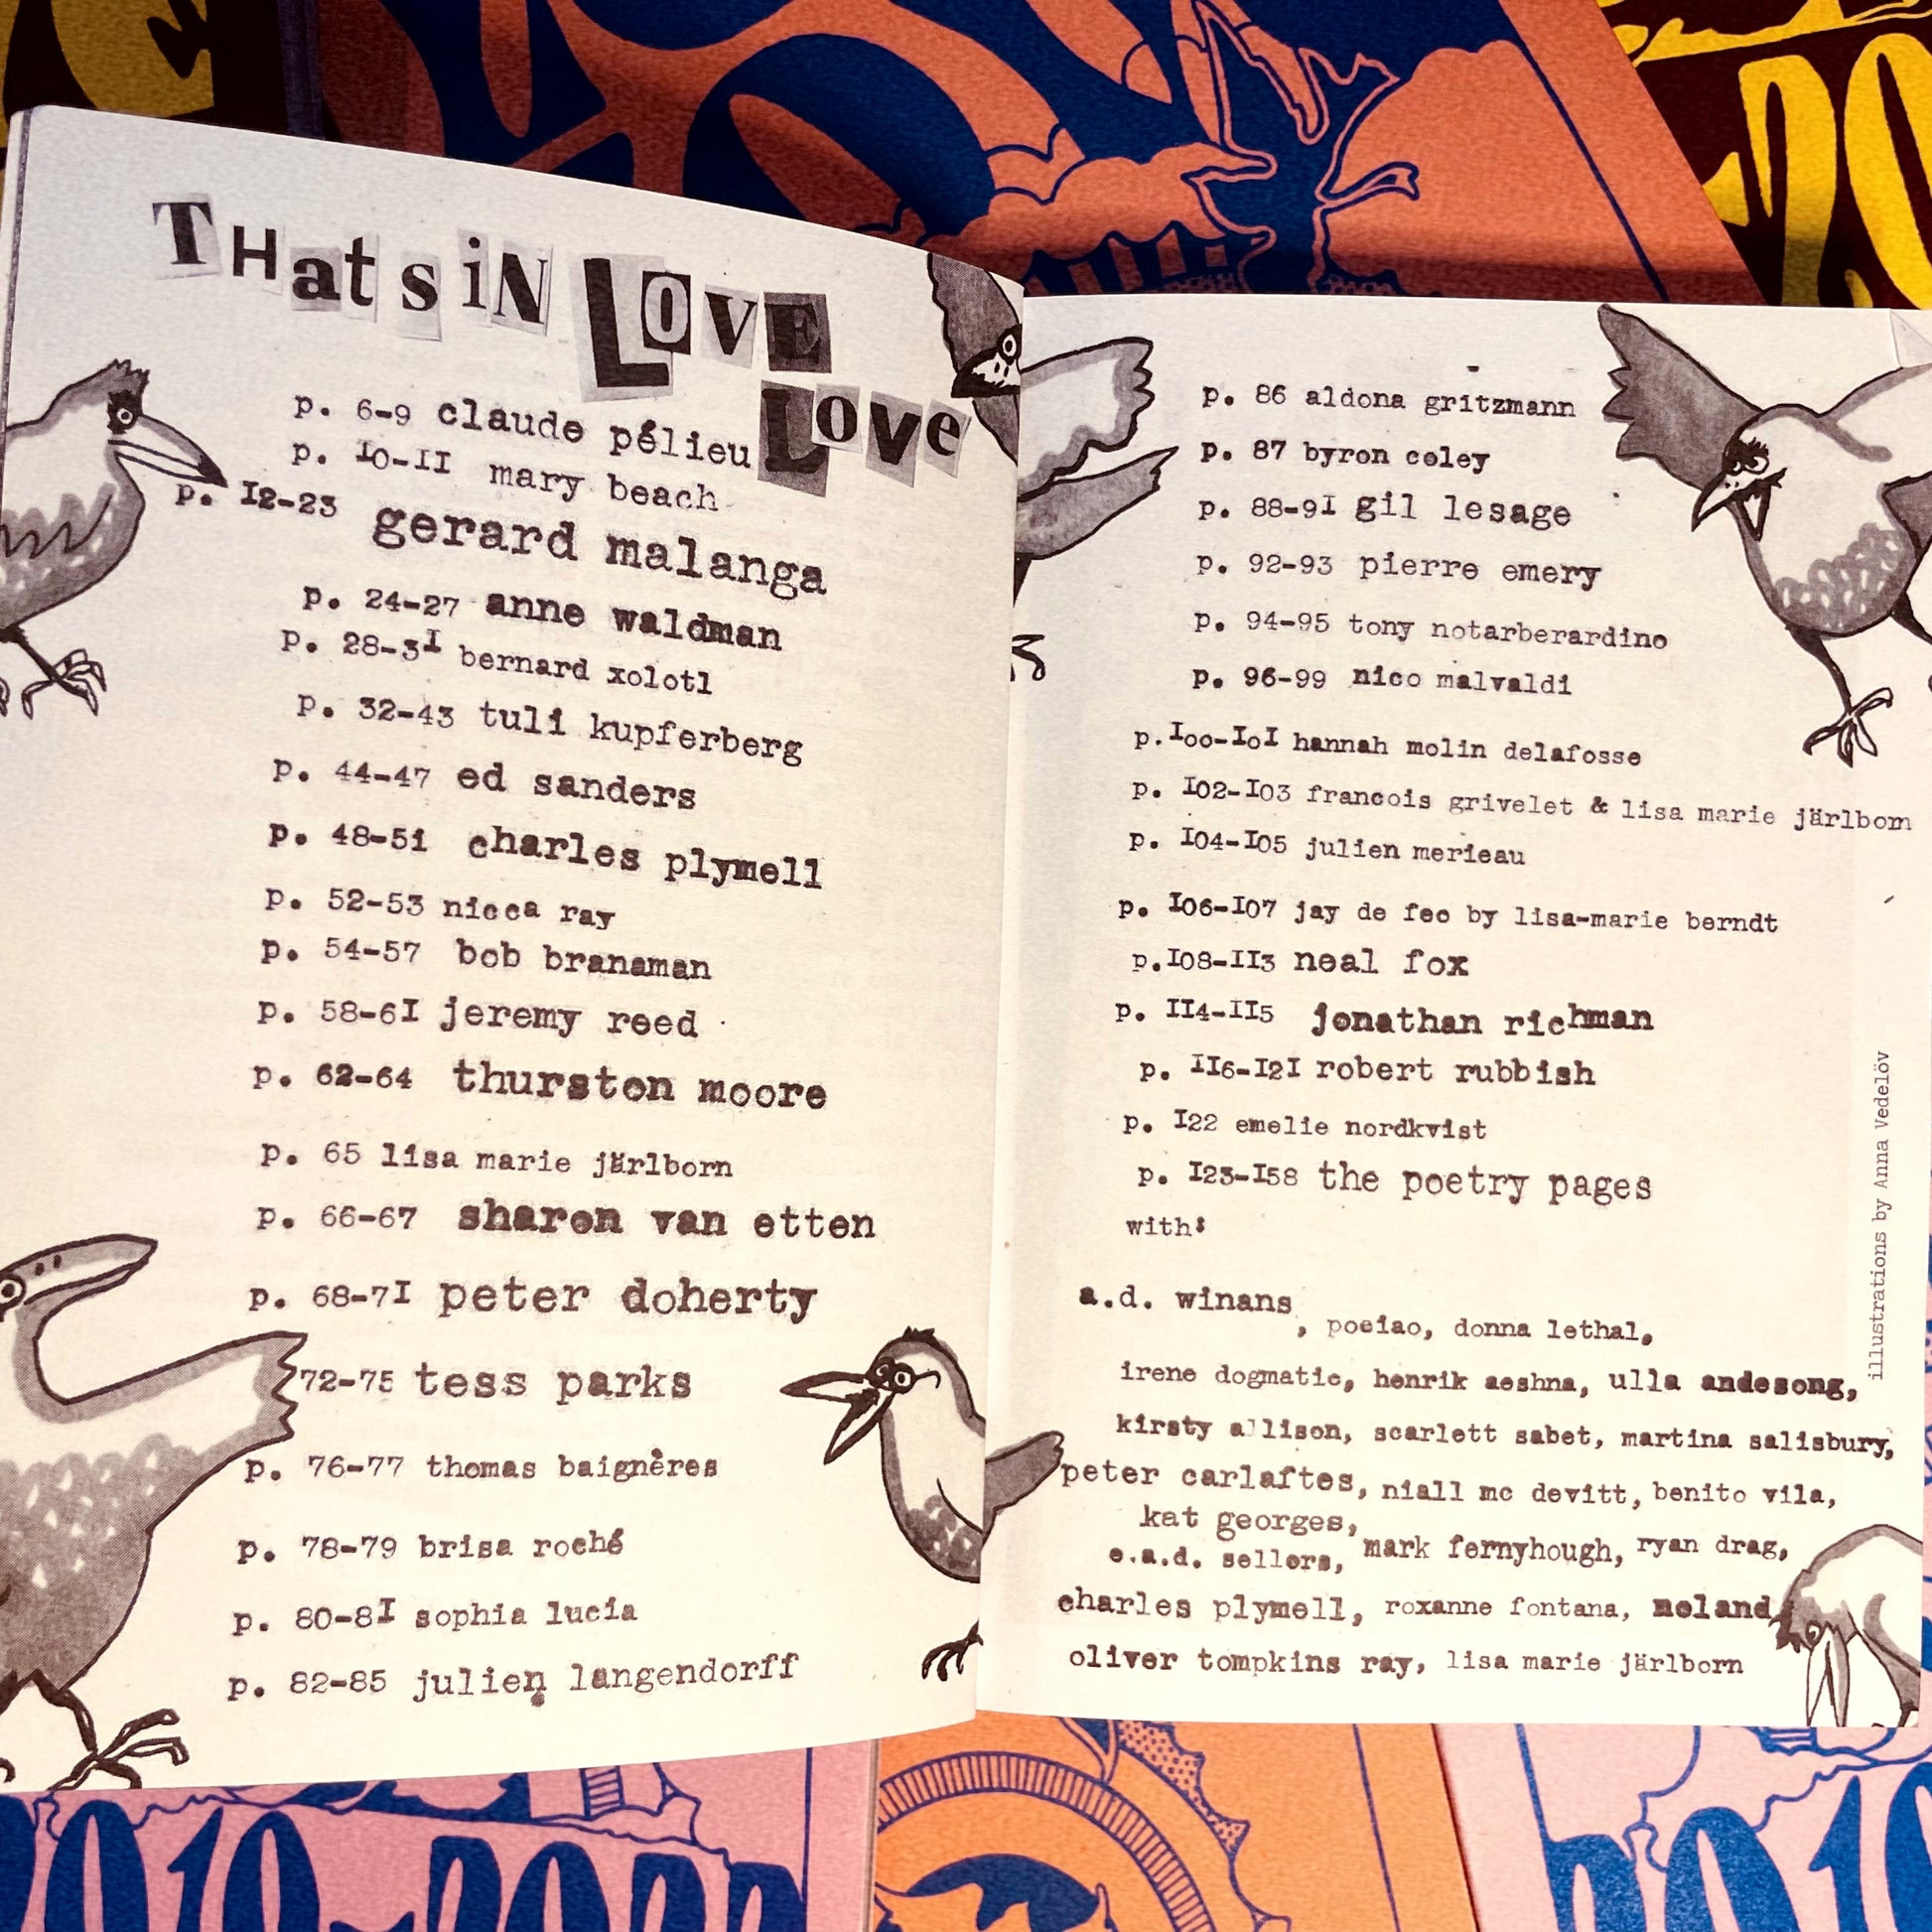 THatsiN LOVE
LOVe
p. 6-9 claude pélieu
p. 10-11 mary beach
p. 12-23 gerard malanga
p. 24-27 anne waldman
p. 28-31 bernard xolotl
p. 32-43 tuli kupferberg
p. 44-47 ed sanders
p. 48-51 charles plymell
p. 52-53 nicca ray
p. 54-57 bob branaman
p. 58-61 jeremy reed
p. 62-64 thurston moore
p. 65 lisa marie järlborn
p. 66-67 sharon van etten
p. 68-71 peter doherty
72-75 tess parks
p. 76-77 thomas baignères
p. 78-79 brisa roché
p. 80-81 sophia lucia
p. 82-85 julien langendorff
p. 86 aldona gritzmann
p. 87 byron coley
p. 88-91 gil lesage
p. 92-93 pierre emery
p. 94-95 tony notarberardino
p. 96-99 nico malvaldi
p.100-101 hannah molin delafosse
p. 102-103 francois grivelet & lisa marie järlborn
p. 104-105 julien merieau
p. 106-107 jay de feo by lisa-marie berndt
p.108-113 neal fox
p. 114-115 jonathan richman
p. 116-121 robert rubbish
p. 122 emelie nordkvist
p. 123-158 the poetry pages
with:
a.d. winans, poeiao, donna lethal,
irene dogmatic, henrik aeshna, ulla andesong,
kirsty allison, scarlett sabet, martina salisbury,
peter carlaftes, niall mc devitt, benito vila,
kat georges,
e.a.d. sellors, mark fernyhough, ryan drag,
charles plymell, roxanne fontana, noland,
oliver tompkins ray, lisa marie järlborn
illustrations by Anna Vedelöv